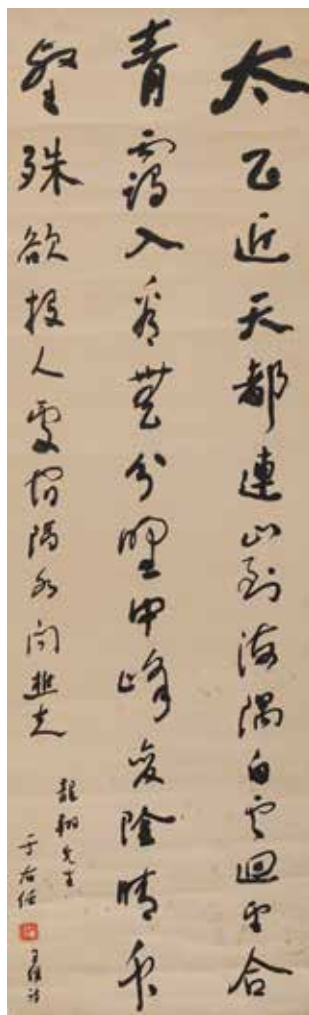 太乙近天都連山到海隅白雲迴望合
青靄入看無分野中峰變陰晴衆
壑殊欲投人處宿隔水問樵夫
先生
于右任
王維詩